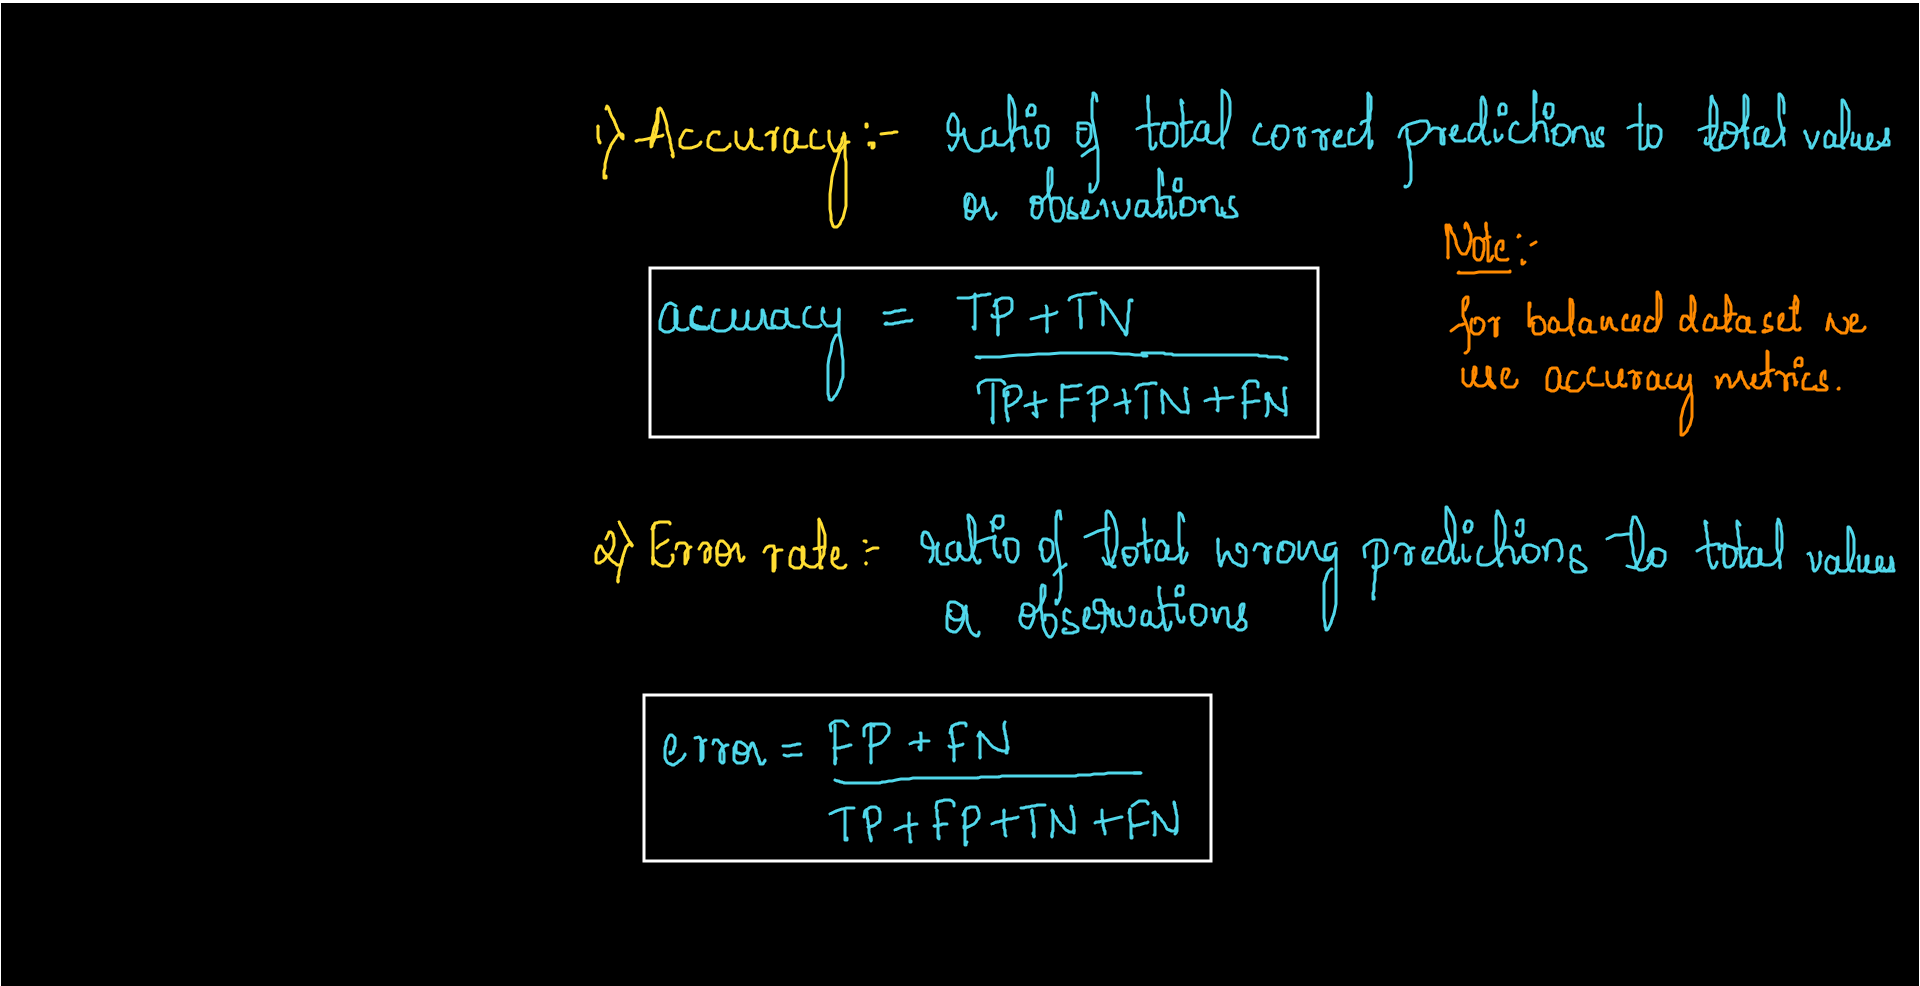 1) Accuracy :- ratio of total correct predictions to total values
or observations
Note :-
accuracy = TP + TN
TP + FP + TN + FN
for balanced dataset we
use accuracy metrics.
2) Error rate :- ratio of total wrong predictions to total values
or observations
error = FP + FN
TP + FP + TN + FN